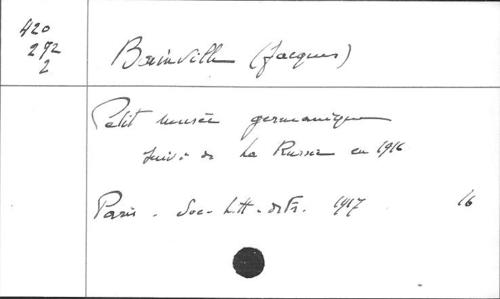 420
272
2
Bainville (Jacques)
Petit musée germanique
suivi de La Russie en 1916
Paris - Soc. Litt. de Fr. 1917 16